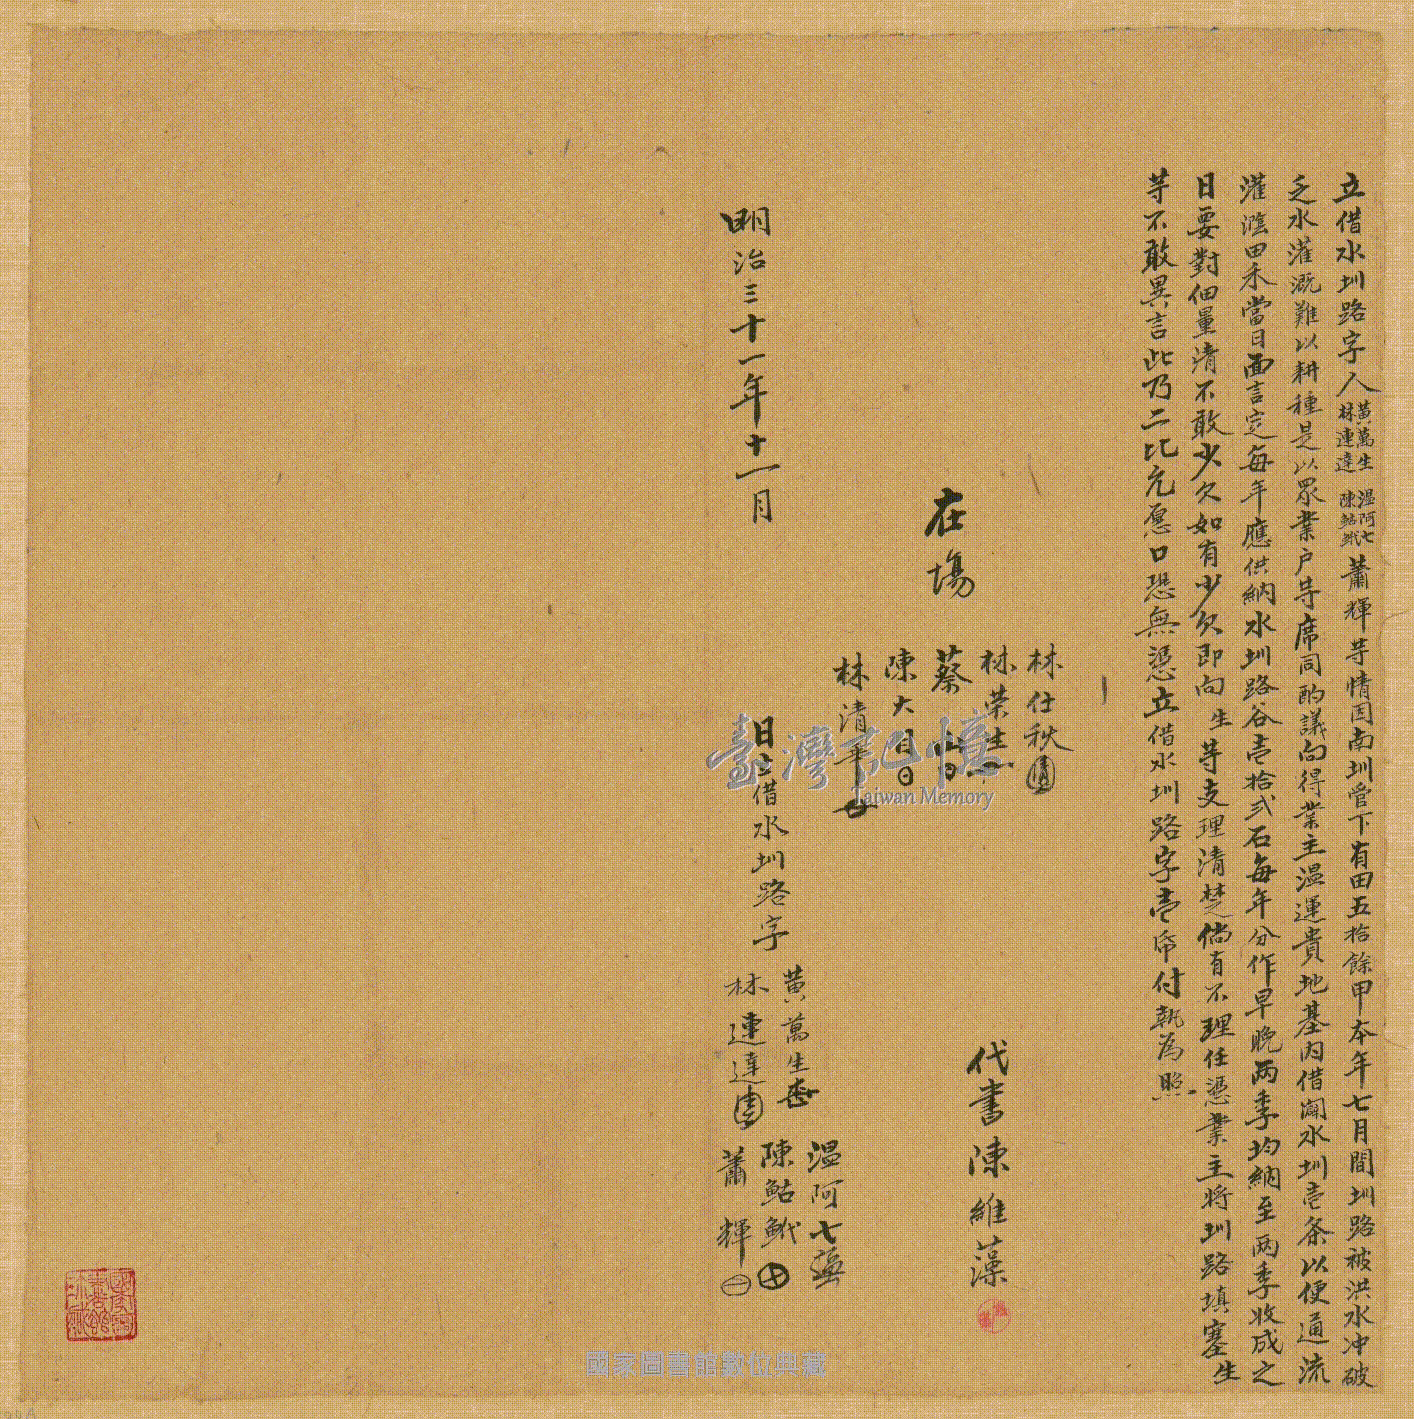 立借水圳路字人黃萬生林連達溫阿七陳鮎鮘蕭輝等情因南圳管下有田五拾餘甲本年七月間圳路被洪水冲破
乏水灌溉難以耕種是以眾業户等席同酌議向得業主温運貴地基内借開水圳壹条以便通流
灌蔭田禾當日面言定每年應供納水圳路谷壹拾弍石每年分作早晚两季均納至两季收成之
日要對佃量清不敢少欠如有少欠即向生等支理清楚倘有不理任憑業主將圳路填塞生
等不敢異言此乃二比允愿口恐無憑立借水圳路字壹帋付執為照
林仕秋
林榮生
在塲
蔡
陳大月
林清華
代書陳維藻
明治三十一年十一月
日立借水圳路字
温阿七
黄萬生
陳鮎鮘
林連達
蕭輝
臺灣記憶
Taiwan Memory
國家圖書館數位典藏